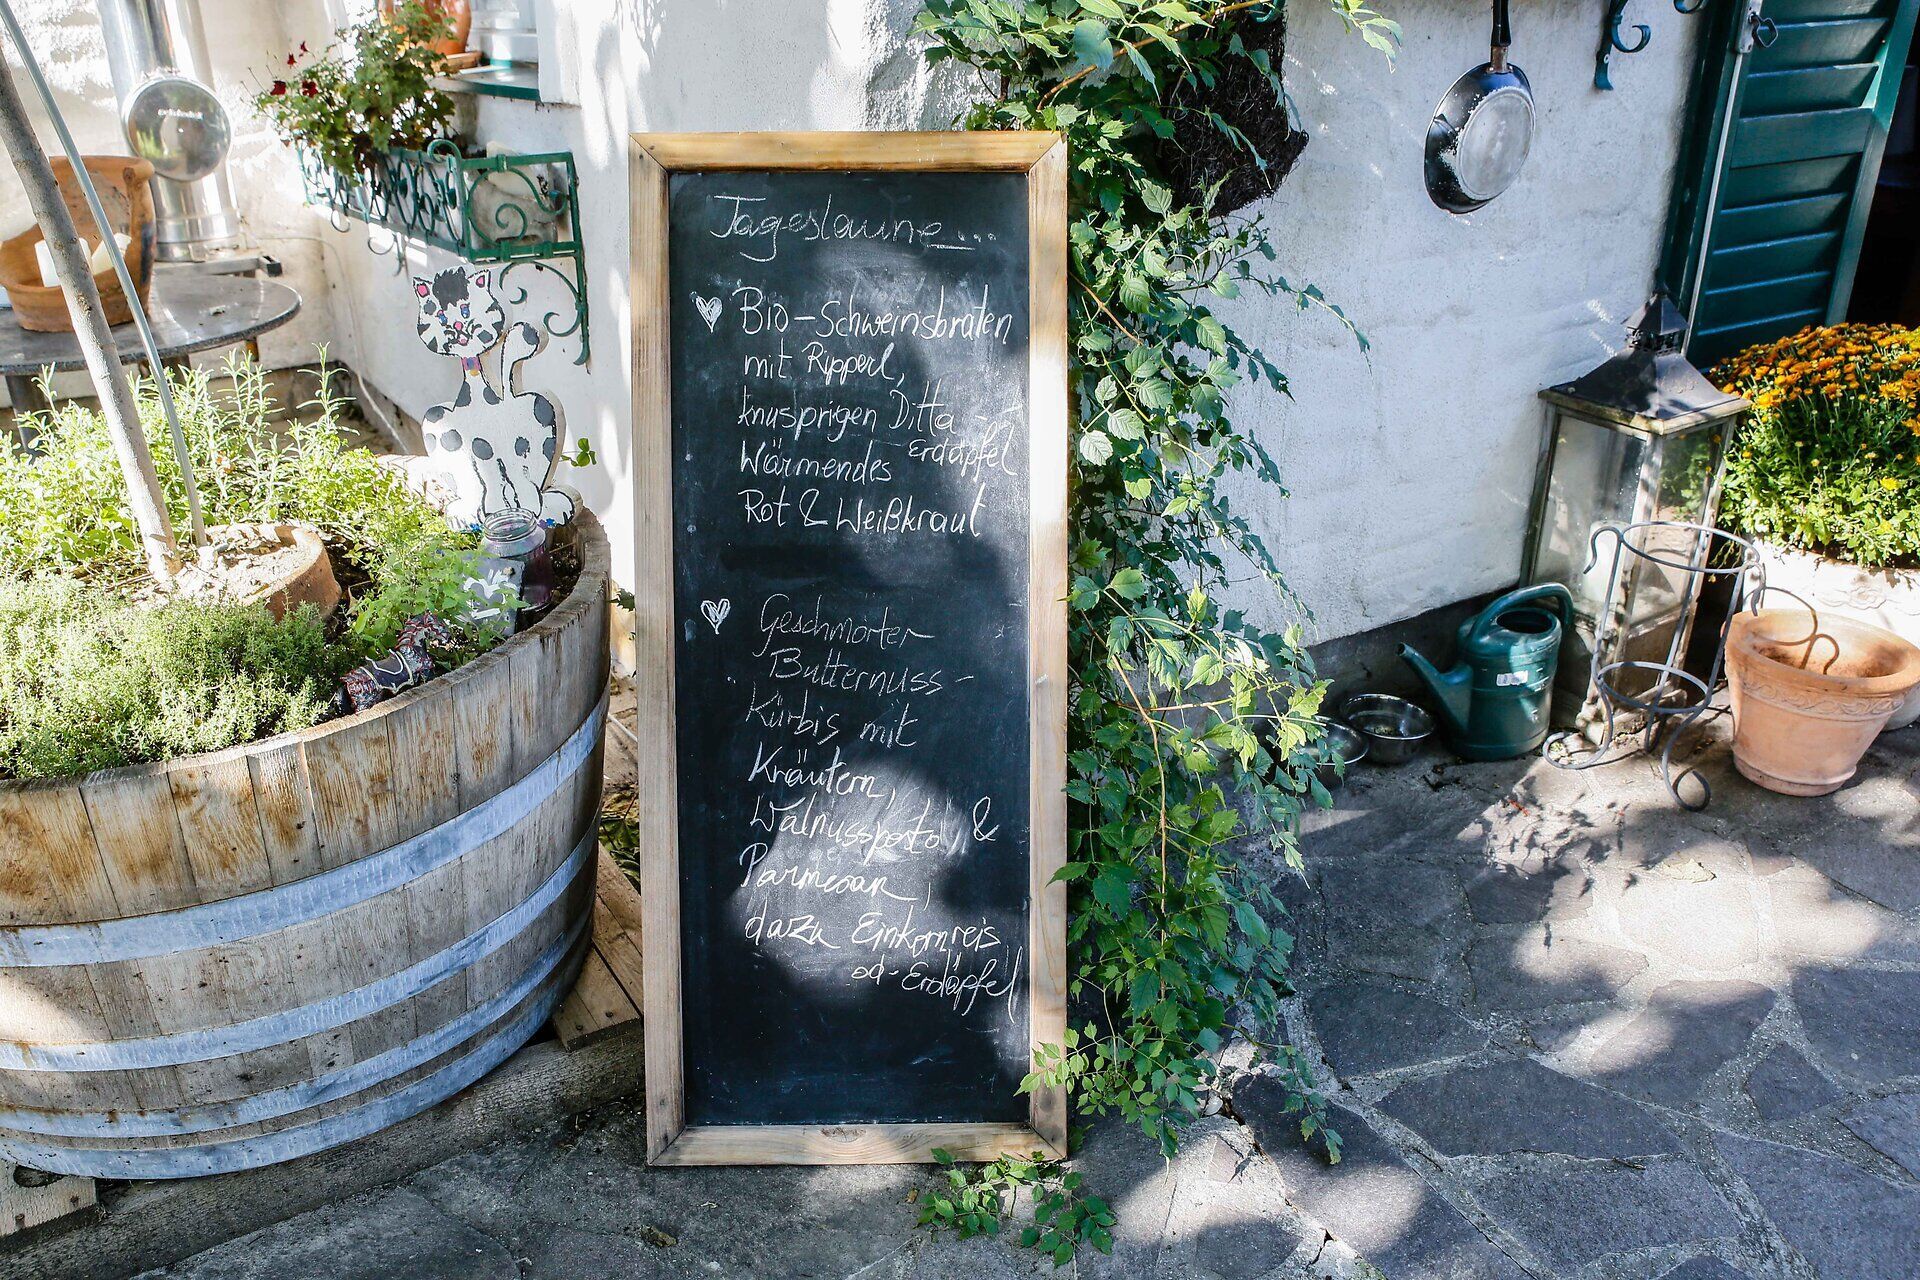 Tageslaune...
Bio-Schweinsbraten
mit Ripperl,
knusprigen Ditta-
Erdäpfel
Wärmendes
Rot & Weißkraut
Geschmorter
Butternuss-
Kürbis mit
Kräutern,
Walnusspesto, &
Parmesan,
dazu Einkornreis
od. Erdäpfel